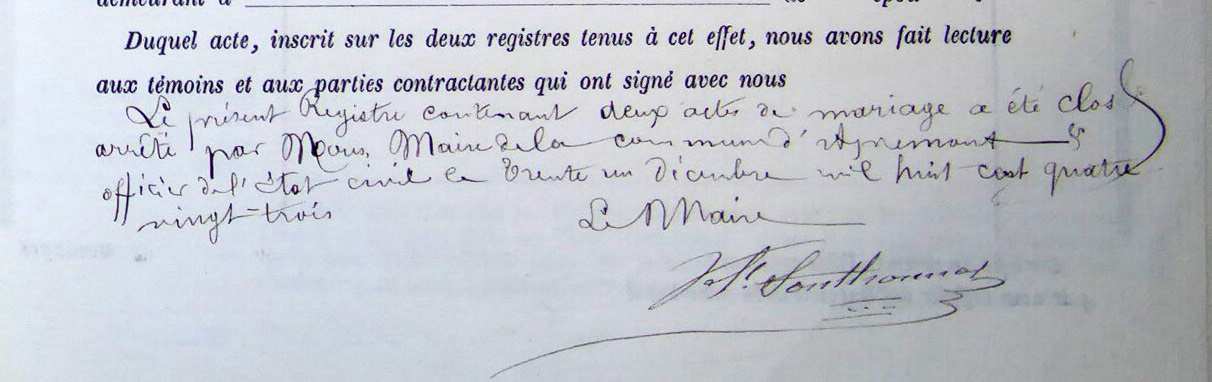 Duquel acte, inscrit sur les deux registres tenus à cet effet, nous avons fait lecture
aux témoins et aux parties contractantes qui ont signé avec nous
Le présent Registre contenant deux actes de mariage a été clos
arrêté par Nous, Maire de la commun d'Apremont
officier de l'état civil le trente un Décembre mil huit cent quatre
vingt-trois
Le Maire